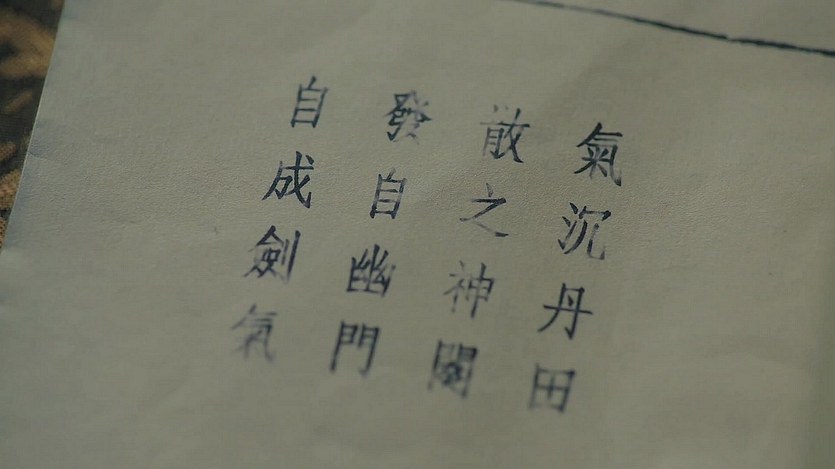 氣沉丹田
散之神闕
發自幽門
自成劍氣